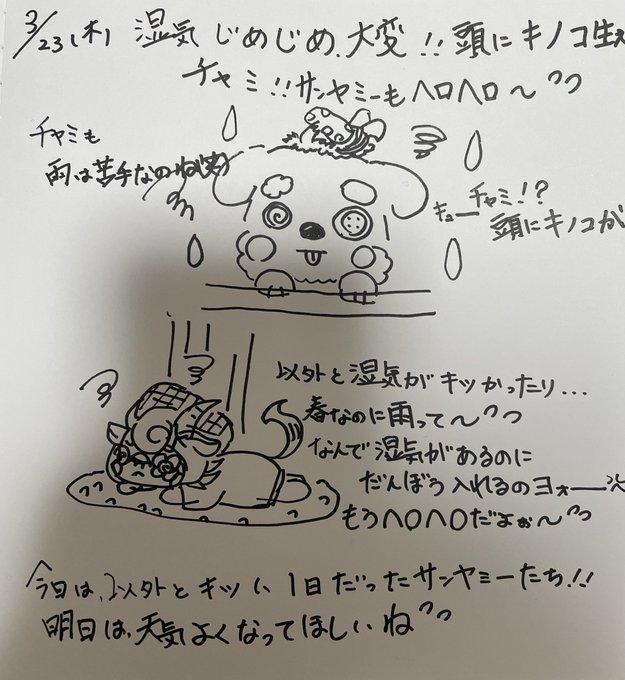 3/23(木) 湿気じめじめ、大変!!頭にキノコ生え
チャミ!!サンヤミーもヘロヘロ〜
チャミも
雨は苦手なのね(笑)
キューチャミ!?
頭にキノコが
以外と湿気がキツかったり...
春なのに雨って〜
なんで湿気があるのに
だんぼう入れるのヨォー
もうヘロヘロだよぉ〜
今日は、以外とキツい1日だったサンヤミーたち!!
明日は、天気よくなってほしいね